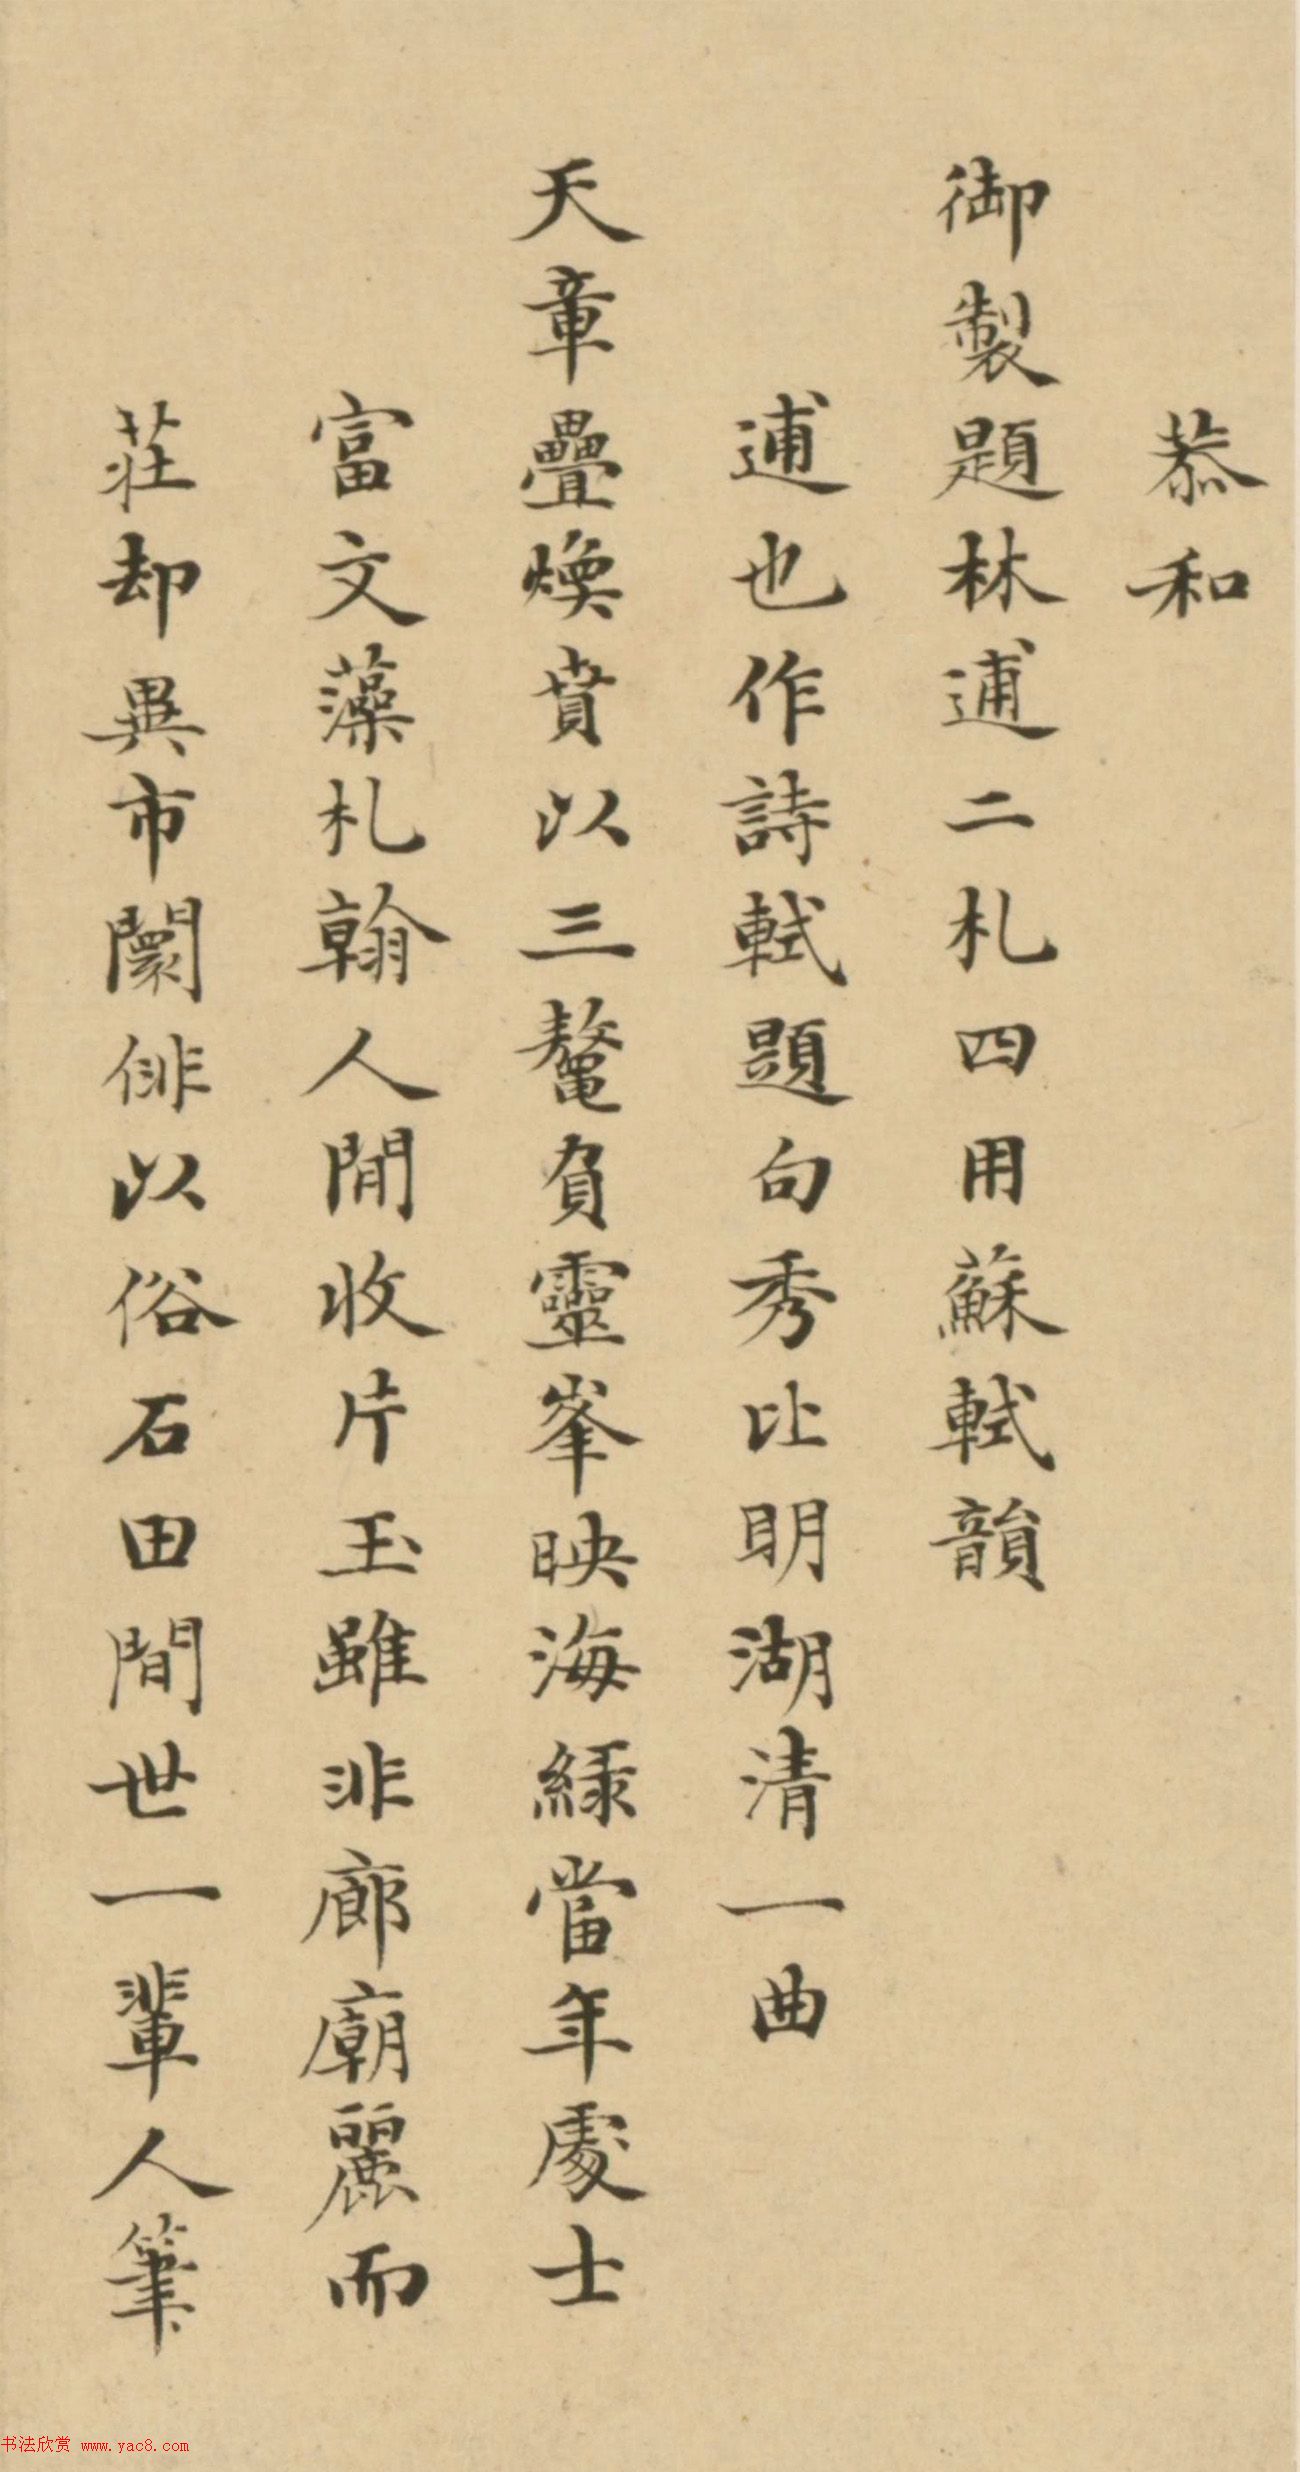 恭和
御製題林逋二札四用蘇軾韻
逋也作詩軾題句秀比明湖清一曲
天章疊煥賁以三鼇負靈峯映海綠當年處士
富文藻札翰人閒收片玉雖非廊廟麗而
莊却異市闤俳以俗石田閒世一輩人筆
书法欣赏 www.yac8.com